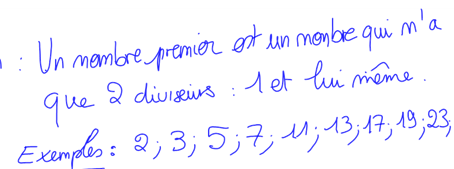 : Un nombre premier est un nombre qui n'a
que 2 diviseurs : 1 et lui même.
Exemples : 2 ; 3 ; 5 ; 7 ; 11 ; 13 ; 17 ; 19 ; 23 ;